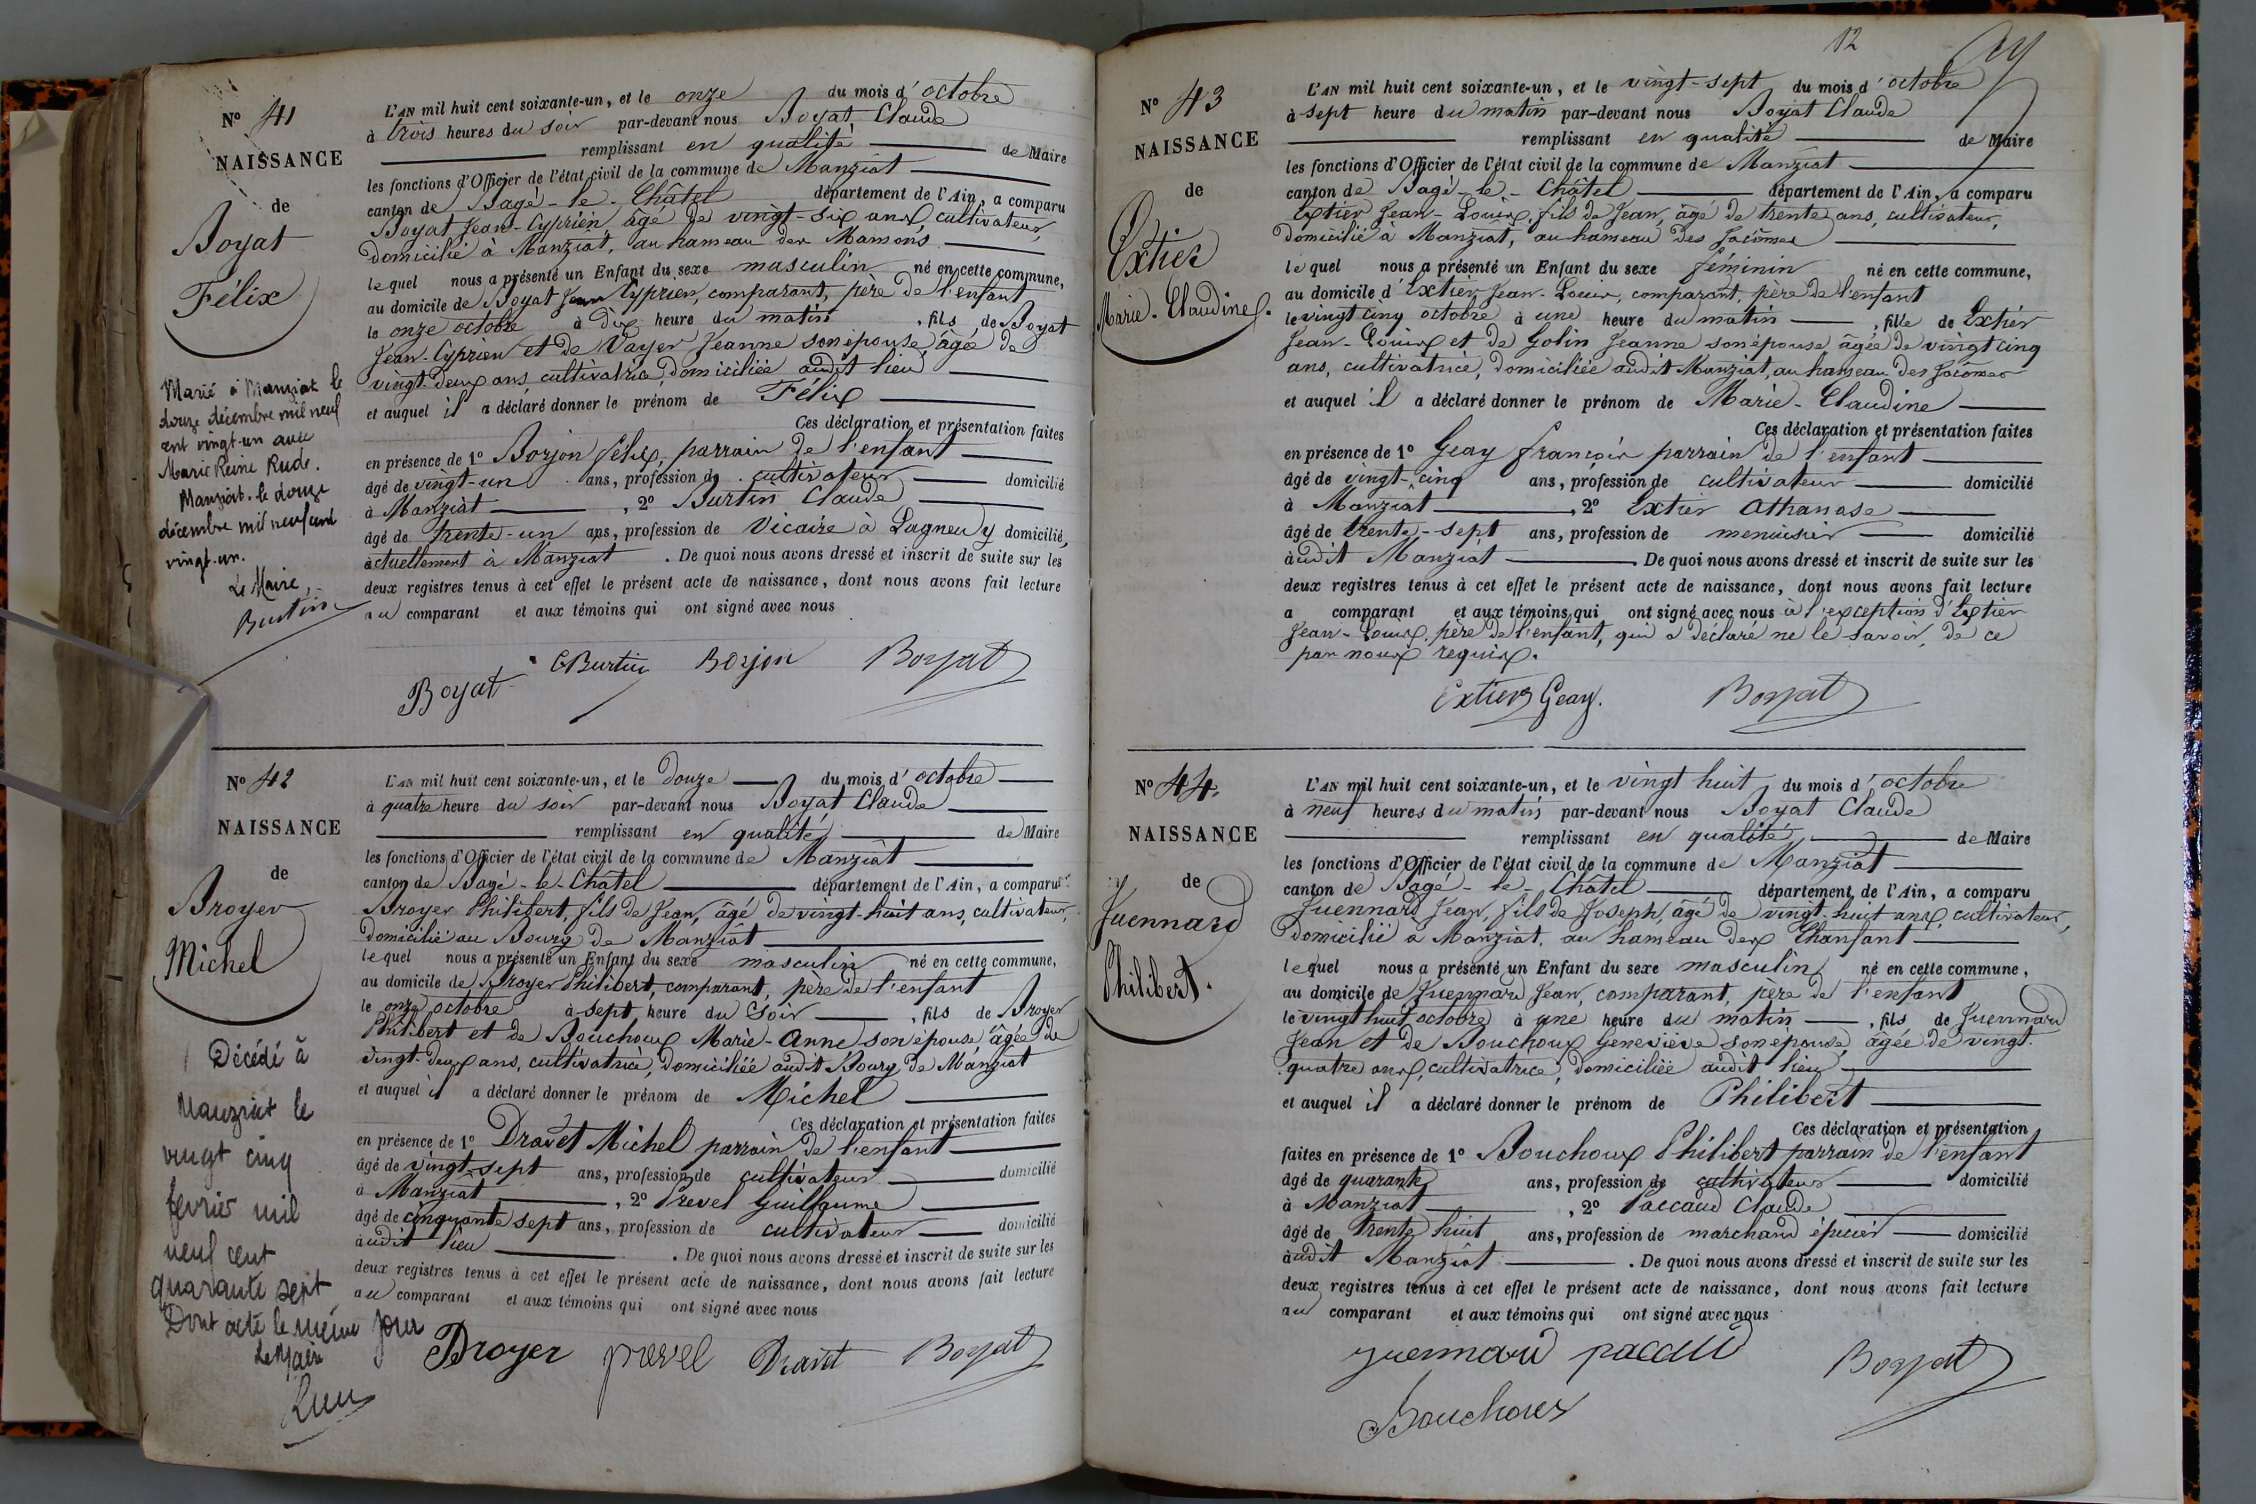 N° 41
NAISSANCE
de
Boyat
Félix
Marié à Manziat le
douze décembre mil neuf
cent vingt-un avec
Marie Reine Rude.
Manziat le douze
décembre mil neuf cent
vingt-un.
Le Maire,
Burtin
L'AN mil huit cent soixante-un, et le onze du mois d'octobre
à trois heures du soir par-devant nous Boyat Claude
remplissant en qualité de Maire
les fonctions d'Officier de l'état civil de la commune de Manziat
canton de Bagé-le-Châtel département de l'Ain, a comparu
Boyat Jean-Cyprien, âgé de vingt-six ans, cultivateur,
domicilié à Manziat, au hameau des Mamons
lequel nous a présenté un Enfant du sexe masculin né en cette commune,
au domicile de Boyat Jean Cyprien, comparant, père de l'enfant
le onze octobre à dix heure du matin, fils de Boyat
Jean-Cyprien et de Vayer Jeanne son épouse, âgée de
vingt-deux ans cultivatrice, domiciliée audit lieu
et auquel il a déclaré donner le prénom de Félix
Ces déclaration et présentation faites
en présence de 1° Borjon Félix, parrain de l'enfant
âgé de vingt-un ans, profession de cultivateur domicilié
à Manziat, 2° Burtin Claude
âgé de trente-un ans, profession de Vicaire à Lagneu y domicilié,
actuellement à Manziat. De quoi nous avons dressé et inscrit de suite sur les
deux registres tenus à cet effet le présent acte de naissance, dont nous avons fait lecture
au comparant et aux témoins qui ont signé avec nous
Boyat CBurtin Borjon Boyat
N° 42
NAISSANCE
de
Broyer
Michel
Décédé à
Manziat le
vingt cinq
fevrier mil
neuf cent
quarante sept
Dont acte le même jour
Le Maire
L'AN mil huit cent soixante-un, et le douze du mois d'octobre
à quatre heure du soir par-devant nous Boyat Claude
remplissant en qualité de Maire
les fonctions d'Officier de l'état civil de la commune de Manziat
canton de Bagé-le-Châtel département de l'Ain, a comparu
Broyer Philibert, fils de Jean, âgé de vingt-huit ans, cultivateur,
domicilié au Bourg de Manziat
lequel nous a présenté un Enfant du sexe masculin né en cette commune,
au domicile de Broyer Philibert, comparant, père de l'enfant
le onze octobre à sept heure du soir, fils de Broyer
Philibert et de Bouchoux Marie-Anne son épouse âgée de
vingt-deux ans, cultivatrice, domiciliée audit Bourg de Manziat
et auquel il a déclaré donner le prénom de Michel
Ces déclaration et présentation faites
en présence de 1° Dravet Michel parrain de l'enfant
âgé de vingt-sept ans, profession de cultivateur domicilié
à Manziat, 2° Prevel Guillaume
âgé de cinquante sept ans, profession de cultivateur domicilié
audit lieu. De quoi nous avons dressé et inscrit de suite sur les
deux registres tenus à cet effet le présent acte de naissance, dont nous avons fait lecture
au comparant et aux témoins qui ont signé avec nous
Broyer prevel Dravet Boyat
12
N° 43
NAISSANCE
de
Extier
Marie-Claudine.
L'AN mil huit cent soixante-un, et le vingt-sept du mois d'octobre
à sept heure du matin par-devant nous Boyat Claude
remplissant en qualité de Maire
les fonctions d'Officier de l'état civil de la commune de Manziat
canton de Bagé-le-Châtel département de l'Ain, a comparu
Extier Jean-Louis, fils de Jean, âgé de trente ans, cultivateur,
domicilié à Manziat, au hameau des Jacômes
lequel nous a présenté un Enfant du sexe féminin né en cette commune,
au domicile d'Extier Jean-Louis, comparant, père de l'enfant
le vingt cinq octobre à une heure du matin, fille de Extier
Jean-Louis et de Golin Jeanne son épouse âgée de vingt cinq
ans, cultivatrice, domiciliée audit Manziat, au hameau des Jacomes
et auquel il a déclaré donner le prénom de Marie-Claudine
Ces déclaration et présentation faites
en présence de 1° Geay François parrain de l'enfant
âgé de vingt-cinq ans, profession de cultivateur domicilié
à Manziat, 2° Extier Athanase
âgé de trente-sept ans, profession de menuisier domicilié
audit Manziat. De quoi nous avons dressé et inscrit de suite sur les
deux registres tenus à cet effet le présent acte de naissance, dont nous avons fait lecture
a comparant et aux témoins qui ont signé avec nous à l'exception d'Extier
Jean-Louis, père de l'enfant, qui a déclaré ne le savoir, de ce
par nous requis.
Extier Geay. Boyat
N° 44.
NAISSANCE
de
Juennard
Philibert.
L'AN mil huit cent soixante-un, et le vingt huit du mois d'octobre
à neuf heures du matin par-devant nous Boyat Claude
remplissant en qualité de Maire
les fonctions d'Officier de l'état civil de la commune de Manziat
canton de Bagé-le-Châtel département de l'Ain, a comparu
Juennard Jean, fils de Joseph, âgé de vingt-huit ans, cultivateur,
domicilié à Manziat, au hameau des Chanfant
lequel nous a présenté un Enfant du sexe masculin né en cette commune,
au domicile de Juennard Jean, comparant, père de l'enfant
le vingt huit octobre à une heure du matin, fils de Juennard
Jean et de Bouchoux Geneviève son épouse, âgée de vingt-
quatre ans, cultivatrice, domiciliée audit lieu
et auquel il a déclaré donner le prénom de Philibert
Ces déclaration et présentation
faites en présence de 1° Bouchoux Philibert parrain de l'enfant
âgé de quarante ans, profession de cultivateur domicilié
à Manziat, 2° Paccaud Claude
âgé de trente huit ans, profession de marchand épicier domicilié
audit Manziat. De quoi nous avons dressé et inscrit de suite sur les
deux registres tenus à cet effet le présent acte de naissance, dont nous avons fait lecture
au comparant et aux témoins qui ont signé avec nous
Juennard paccaud Boyat
Bouchoux